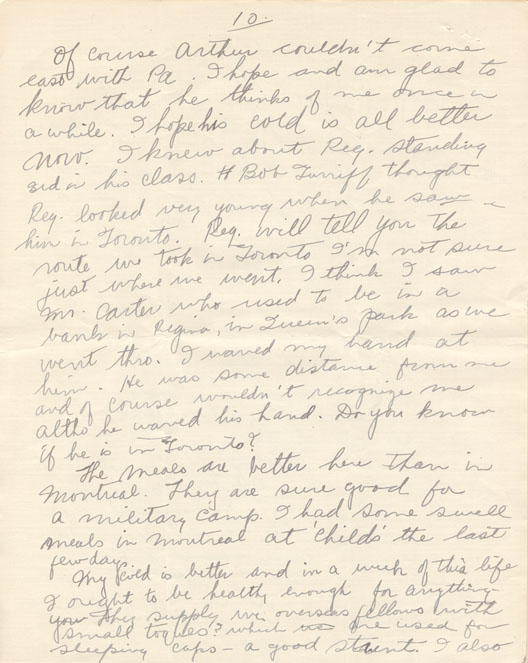 10.
Of course Arthur couldn't come
east with Pa. I hope and am glad to
know that he thinks of me once in
a while. I hope his cold is all better
now. I knew about Reg. standing
3rd in his class. # Bob Turriff thought
Reg. looked very young when he saw
him in Toronto. Reg. will tell you the
route we took in Toronto I'm not sure
just where we went. I think I saw
Mr. Carter who used to be in a
bank in Regina, in Queen's park as we
went thro. I waved my hand at
him. He was some distance from me
and of course wouldn't recognize me
altho he waved his hand. Do you know
if he is in Toronto?
The meals are better here than in
Montreal. They are sure good for
a military camp. I had some swell
meals in Montreal at 'Childs' the last
few days.
My cold is better and in a week of this life
I ought to be healthy enough for anything.
you they supply we overseas fellows with
small toques? which are used for
sleeping caps – a good stunt. I also